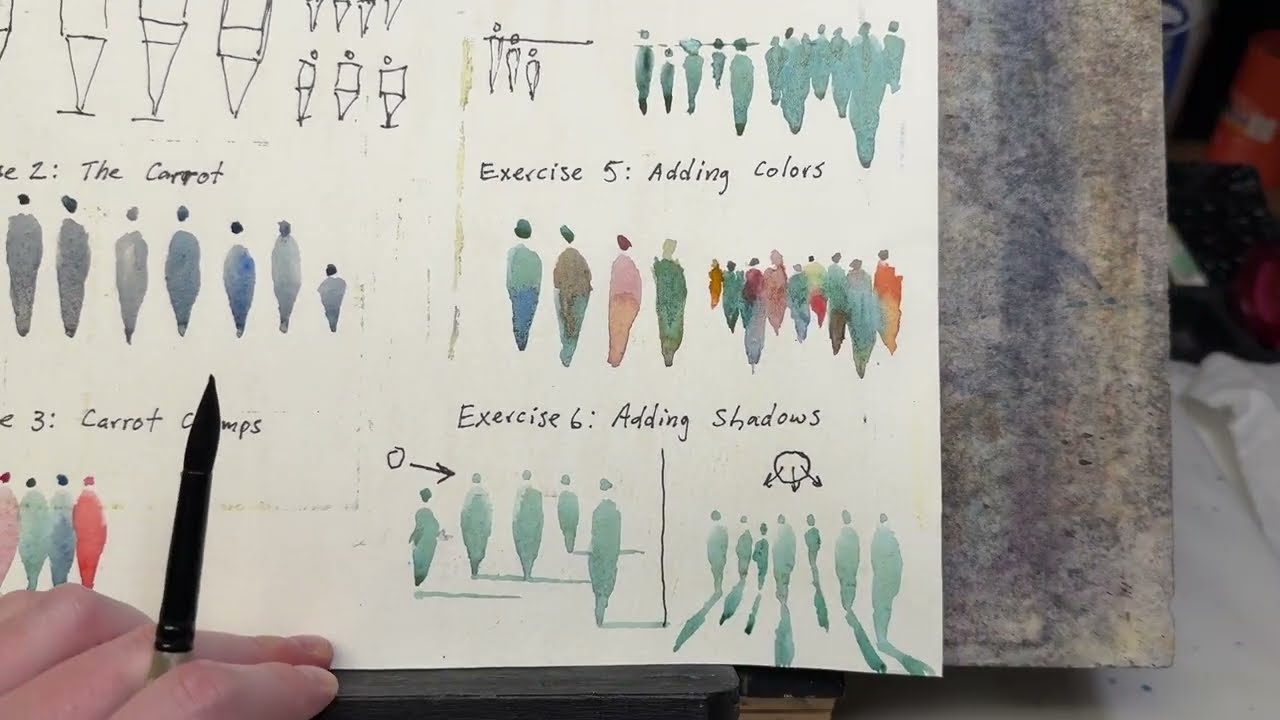 se 2: The Carrot
Exercise 5: Adding Colors
e 3: Carrot C mps
Exercise 6: Adding Shadows